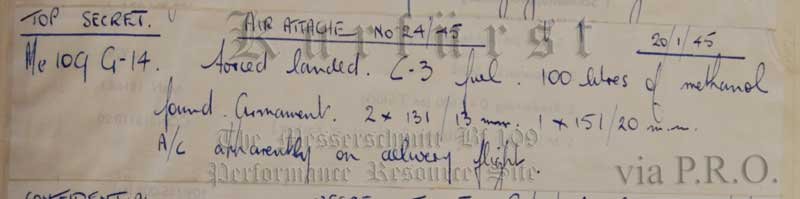 TOP SECRET. AIR ATTACHE No 24/45 20/1/45
Me 109 G-14. forced landed. C-3 fuel. 100 litres of methanol
found. Armament. 2 x 131/13 mm. 1 x 151/20 m.m.
A/C apparently on delivery flight.
Kurfürst
The Messerschmitt Bf 109
Performance Resource Site
via P.R.O.